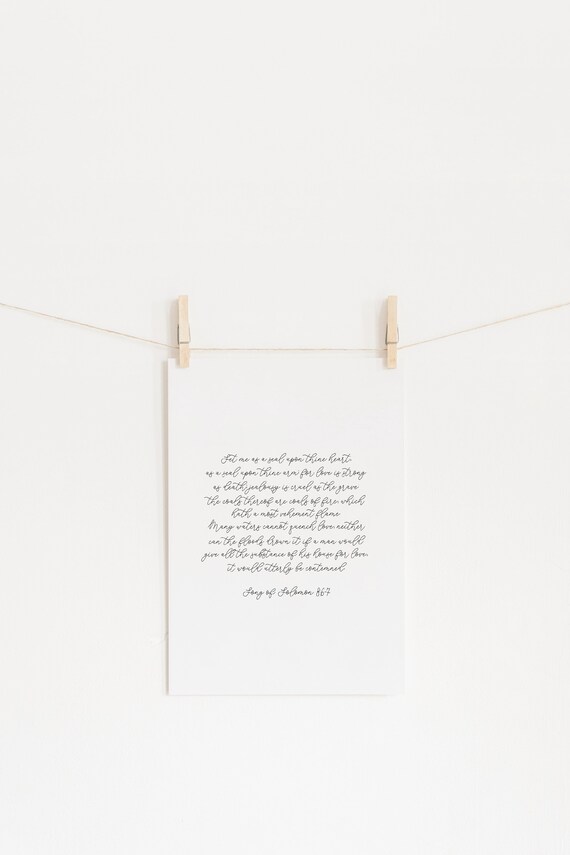 Set me as a seal upon thine heart,
as a seal upon thine arm for love is strong
as death; jealousy is cruel as the grave
the coals thereof are coals of fire, which
hath a most vehement flame
Many waters cannot quench love neither
can the floods drown it if a man would
give all the substance of his house for love,
it would utterly be contemned
Song of Solomon 867